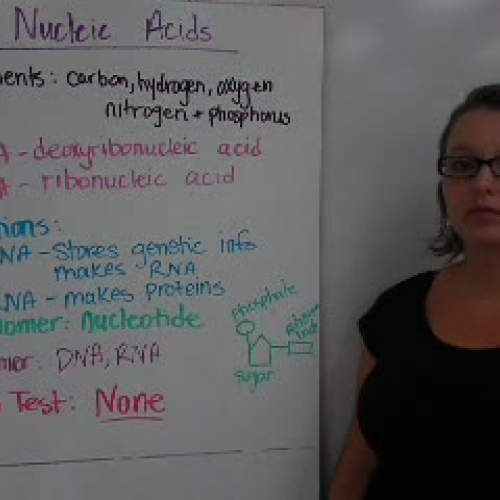 Nucleic Acids
ments: carbon, hydrogen, oxygen
nitrogen + phosphorus
A - deoxyribonucleic acid
A - ribonucleic acid
tions:
NA - Stores genetic info
makes RNA
RNA - makes proteins
nomer: Nucleotide
mer: DNA, RNA
Test: None
Phosphate
Sugar